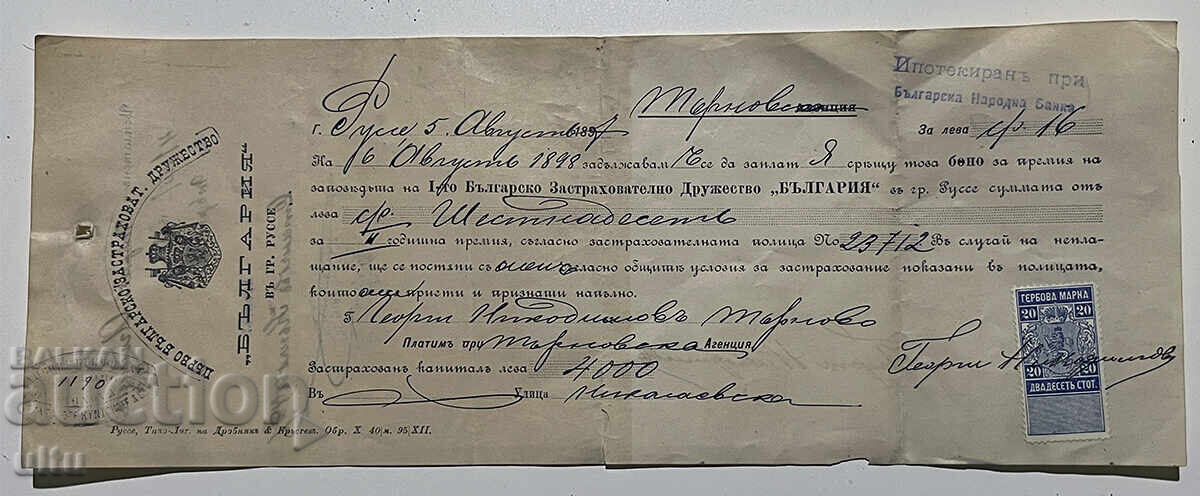 ПЪРВО БЪЛГАРСКО ЗАСТРАХОВАТ. ДРУЖЕСТВО
„БЪЛГАРИЯ“
ВЪ ГР. РУССЕ
1190
Ипотекиранъ при
Българска Народна Банка
Търновска
г. Руссе, 5 Августъ 1897
За лева ср. 16
На 6 Августъ 1898 задължавам се да заплат Я срѣщу това боно за премия на
заповѣдьта на I-то Българско Застрахователно Дружество „БЪЛГАРИЯ“ въ гр. Руссе суммата отъ
лева ср. Шестнадесетъ
за II годишна премия, съгласно застрахователната полица No 23712 Въ случай на непла-
щание, ще се постѫпи съ мене съгласно общитѣ условия за застрахование показани въ полицата,
които приети и признати напълно.
Георги Никодимовъ Търново
Платимъ при Търновска Агенция
Застрахованъ капиталъ лева 4000
Въ Улица Николаевска
Руссе, Типо-Лит. на Дробнякъ & Кръстев. Обр. X 40|м. 95|XII.
ГЕРБОВА МАРКА
20 20
20 20
ДВАДЕСЕТЬ СТОТ.
Георги Никодимовъ
BALKAN
auction
ulfu